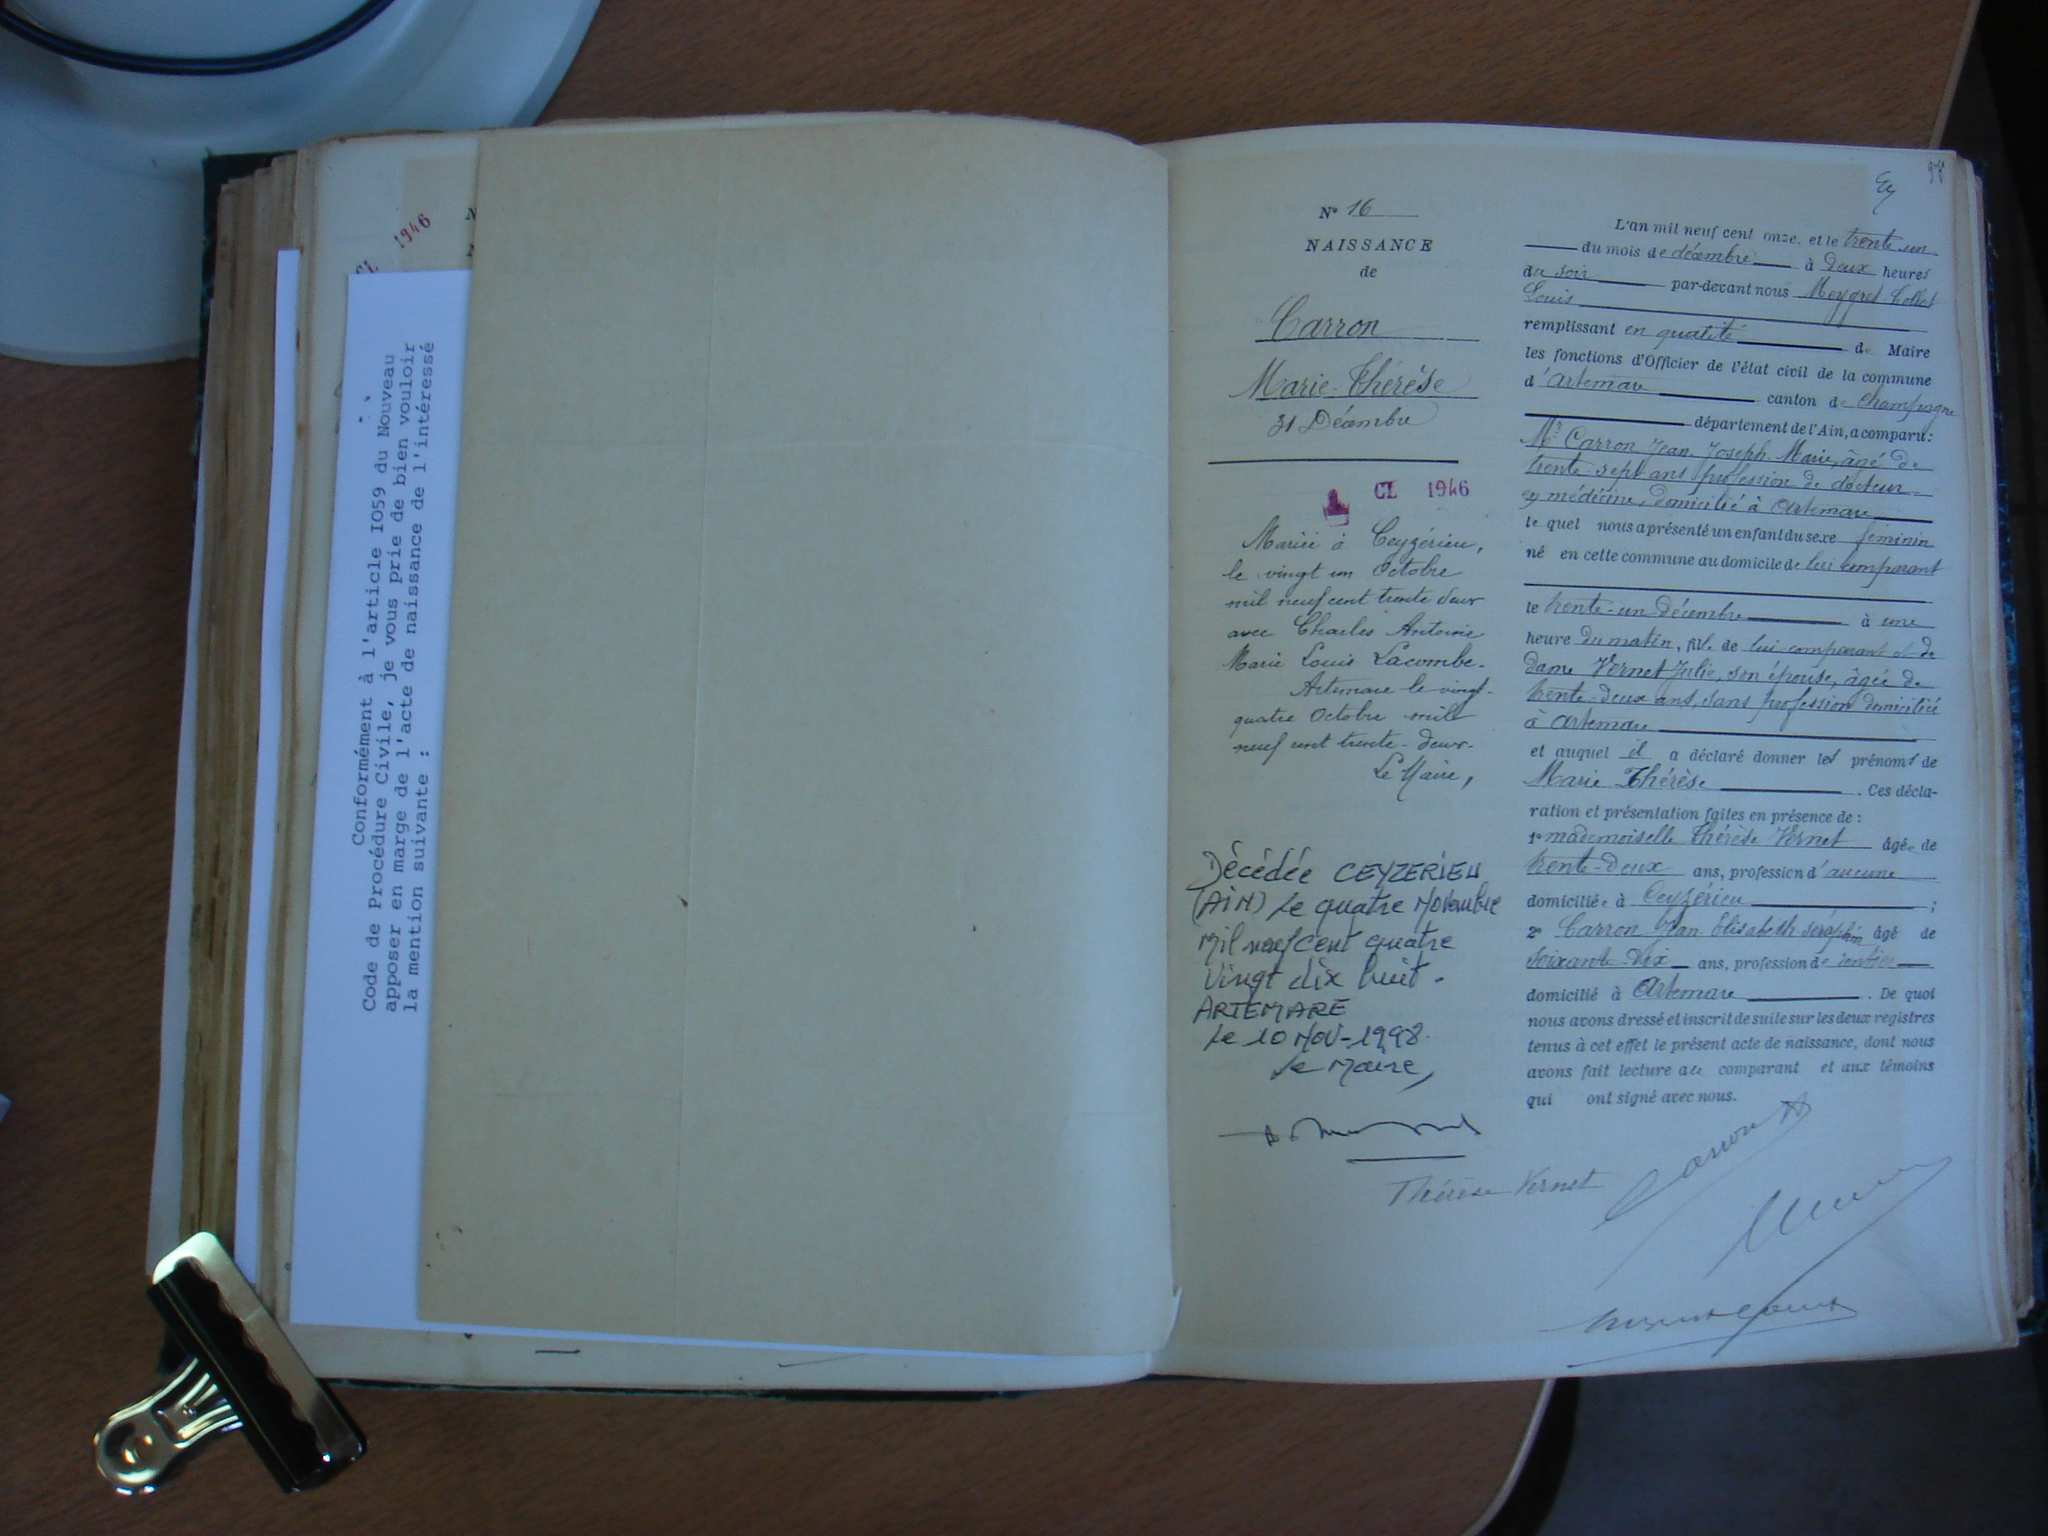 1946
CL
Conformément à l'article IO59 du Nouveau
Code de Procédure Civile, je vous prie de bien vouloir
apposer en marge de l'acte de naissance de l'intéressé
la mention suivante :
N° 16
NAISSANCE
de
Carron
Marie-Thérèse
31 Décembre
CL 1946
Mariée à Ceyzérieu,
le vingt un Octobre
mil neuf cent trente deux
avec Charles Antoine
Marie Louis Lacombe.
Artemare le vingt-
quatre Octobre mil
neuf cent trente-deux.
Le Maire,
Décédée CEYZERIEU
(AIN) le quatre Novembre
Mil neuf cent quatre
Vingt dix huit.
ARTEMARE
le 10 NOV-1998.
le Maire,
Thérèse Vernet
97
L'an mil neuf cent onze, et le trente un
du mois de décembre à deux heures
du soir par-devant nous Meygret Collet
Louis
remplissant en qualité de Maire
les fonctions d'Officier de l'état civil de la commune
d'Artemare canton de Champagne
département de l'Ain, a comparu:
Mr Carron Jean Joseph Marie, âgé de
trente-sept ans profession de docteur
en médécine, domicilié à Artemare
lequel nous a présenté un enfant du sexe féminin
né en cette commune au domicile de lui comparant
le trente-un décembre à une
heure du matin, fille de lui comparant et de
dame Vernet Julie, son épouse, âgée de
trente-deux ans, sans profession domiciliée
à Artemare
et auquel il a déclaré donner les prénoms de
Marie Thérèse . Ces décla-
ration et présentation faites en présence de :
1° mademoiselle Thérèse Vernet âgée de
trente-deux ans, profession d'aucune
domiciliée à Ceyzérieu ;
2° Carron Jean Elisabeth Séraphin âgé de
soixante-dix ans, profession de rentier
domicilié à Artemare . De quoi
nous avons dressé et inscrit de suite sur les deux registres
tenus à cet effet le présent acte de naissance, dont nous
avons fait lecture au comparant et aux témoins
qui ont signé avec nous.
Carron